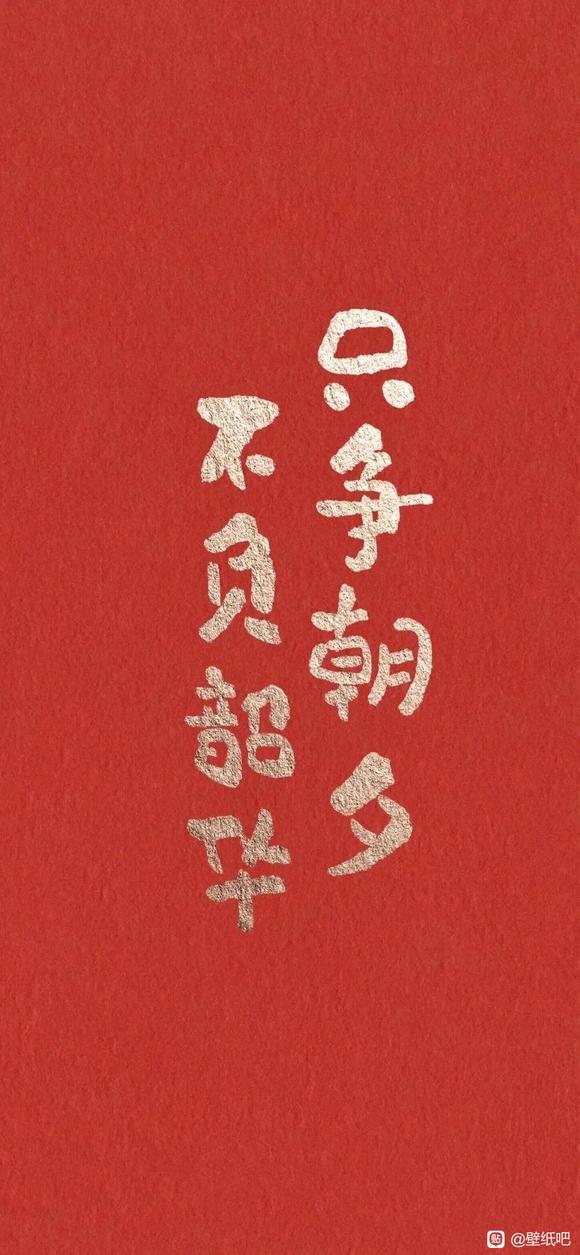 只争朝夕
不负韶华
贴 @壁纸吧